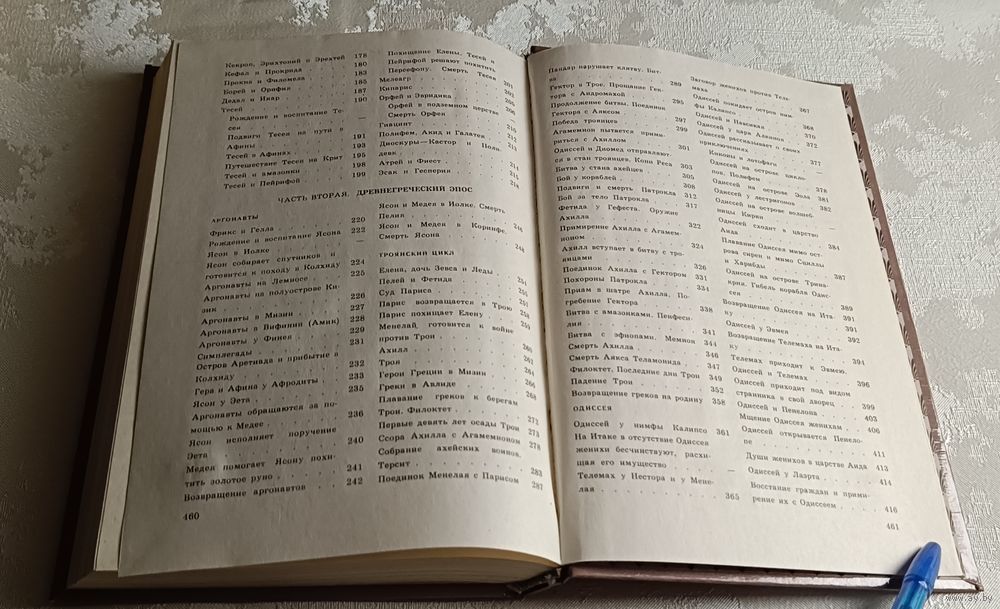 Кекроп, Эрихтоний и Эрехтей 178
Кефал и Прокрида . . . 180
Прокна и Филомела . . . 183
Борей и Орифия . . . 185
Дедал и Икар . . . 187
Тесей . . . 190
Рождение и воспитание Те-
сея . . . —
Подвиги Тесея на пути в
Афины . . . 191
Тесей в Афинах . . . 193
Путешествие Тесея на Крит 195
Тесей и амазонки . . . 198
Тесей и Пейрифой . . . 199
Похищение Елены. Тесей и
Пейрифой решают похитить
Персефону. Смерть Тесея
Мелеагр . . . 201
Кипарис
Орфей и Эвридика
Орфей в подземном царстве
Смерть Орфея
Гиацинт . . . 210
Полифем, Акид и Галатея . 212
Диоскуры—Кастор и Поли-
девк
Атрей и Фиест . . . 214
Эсак и Гесперия . . . 216
ЧАСТЬ ВТОРАЯ. ДРЕВНЕГРЕЧЕСКИЙ ЭПОС
АРГОНАВТЫ
Фрикс и Гелла . . . 220
Рождение и воспитание Ясона 222
Ясон в Иолке . . . —
Ясон собирает спутников и
готовится к походу в Колхиду 224
Аргонавты на Лемносе . . . 225
Аргонавты на полуострове Ки-
зик . . . 226
Аргонавты в Мизии . . . 227
Аргонавты в Вифинии (Амик) 228
Аргонавты у Финея . . . 229
Симплегады . . . 231
Остров Аретиада и прибытие в
Колхиду . . . 232
Гера и Афина у Афродиты . 233
Ясон у Эета . . . 235
Аргонавты обращаются за по-
мощью к Медее . . . 236
Ясон исполняет поручение
Эета . . . 240
Медея помогает Ясону похи-
тить золотое руно . . . 241
Возвращение аргонавтов . . . 242
Ясон и Медея в Иолке. Смерть
Пелия . . . 246
Ясон и Медея в Коринфе.
Смерть Ясона . . . 248
ТРОЯНСКИЙ ЦИКЛ
Елена, дочь Зевса и Леды . 251
Пелей и Фетида
Суд Париса
Парис возвращается в Трою
Парис похищает Елену . 258
Менелай готовится к войне
против Трои . . . 260
Ахилл . . . 262
Троя . . . 264
Герои Греции в Мизии . . . 266
Греки в Авлиде . . . 268
Плавание греков к берегам
Трои. Филоктет . . . 272
Первые девять лет осады Трои 273
Ссора Ахилла с Агамемноном 278
Собрание ахейских воинов.
Терсит . . . 283
Поединок Менелая с Парисом 287
460
Пандар нарушает клятву. Бит-
ва . . . 289
Гектор в Трое. Прощание Гек-
тора с Андромахой . . . 295
Продолжение битвы. Поединок
Гектора с Аяксом . . . 297
Победа троянцев . . . 299
Агамемнон пытается прими-
риться с Ахиллом . . . 301
Одиссей и Диомед отправляют-
ся в стан троянцев. Кони Реса 303
Битва у стана ахейцев . . . 305
Бой у кораблей . . . 308
Подвиги и смерть Патрокла . 312
Бой за тело Патрокла
Фетида у Гефеста. Оружие
Ахилла . . . 322
Примирение Ахилла с Агамем-
ноном . . . 324
Ахилл вступает в битву с тро-
янцами . . . 326
Поединок Ахилла с Гектором 331
Похороны Патрокла . . . 334
Приам в шатре Ахилла. По-
гребение Гектора . . . 338
Битва с амазонками. Пенфеси-
лия . . . 341
Битва с эфиопами. Мемнон 344
Смерть Ахилла . . . 346
Смерть Аякса Теламонида . . . 347
Филоктет. Последние дни Трои 349
Падение Трои . . . 352
Возвращение греков на родину 358
ОДИССЕЯ
Одиссей у нимфы Калипсо 361
На Итаке в отсутствие Одиссея
женихи бесчинствуют, расхи-
щая его имущество . . . —
Телемах у Нестора и у Мене-
лая . . . 365
Заговор женихов против Теле-
маха . . . 367
Одиссей покидает остров ним-
фы Калипсо . . . 368
Одиссей и Навсикая . . . 370
Одиссей у царя Алкиноя . 372
Одиссей рассказывает о своих
приключениях . . . 377
Киконы и лотофаги . . . —
Одиссей на острове цикло-
пов. Полифем . . . 378
Одиссей на острове Эола 381
Одиссей у лестригонов . 382
Одиссей на острове волшеб-
ницы Кирки
Одиссей сходит в царство
Аида . . . 384
Плавание Одиссея мимо ост-
рова сирен и мимо Сциллы
и Харибды . . . 387
Одиссей на острове Трина-
крия. Гибель корабля Одис-
сея . . . 389
Возвращение Одиссея на Ита-
ку . . . 391
Одиссей у Эвмея . . . 392
Возвращение Телемаха на Ита-
ку . . . 394
Телемах приходит к Эвмею.
Одиссей и Телемах . . . 396
Одиссей приходит под видом
странника в свой дворец . . . 399
Одиссей и Пенелопа . . . 403
Мщение Одиссея женихам . 406
Одиссей открывается Пенело-
пе . . . 411
Души женихов в царстве Аида 413
Одиссей у Лаэрта . . . 414
Восстание граждан и прими-
рение их с Одиссеем . . . 416
461
www.ay.by